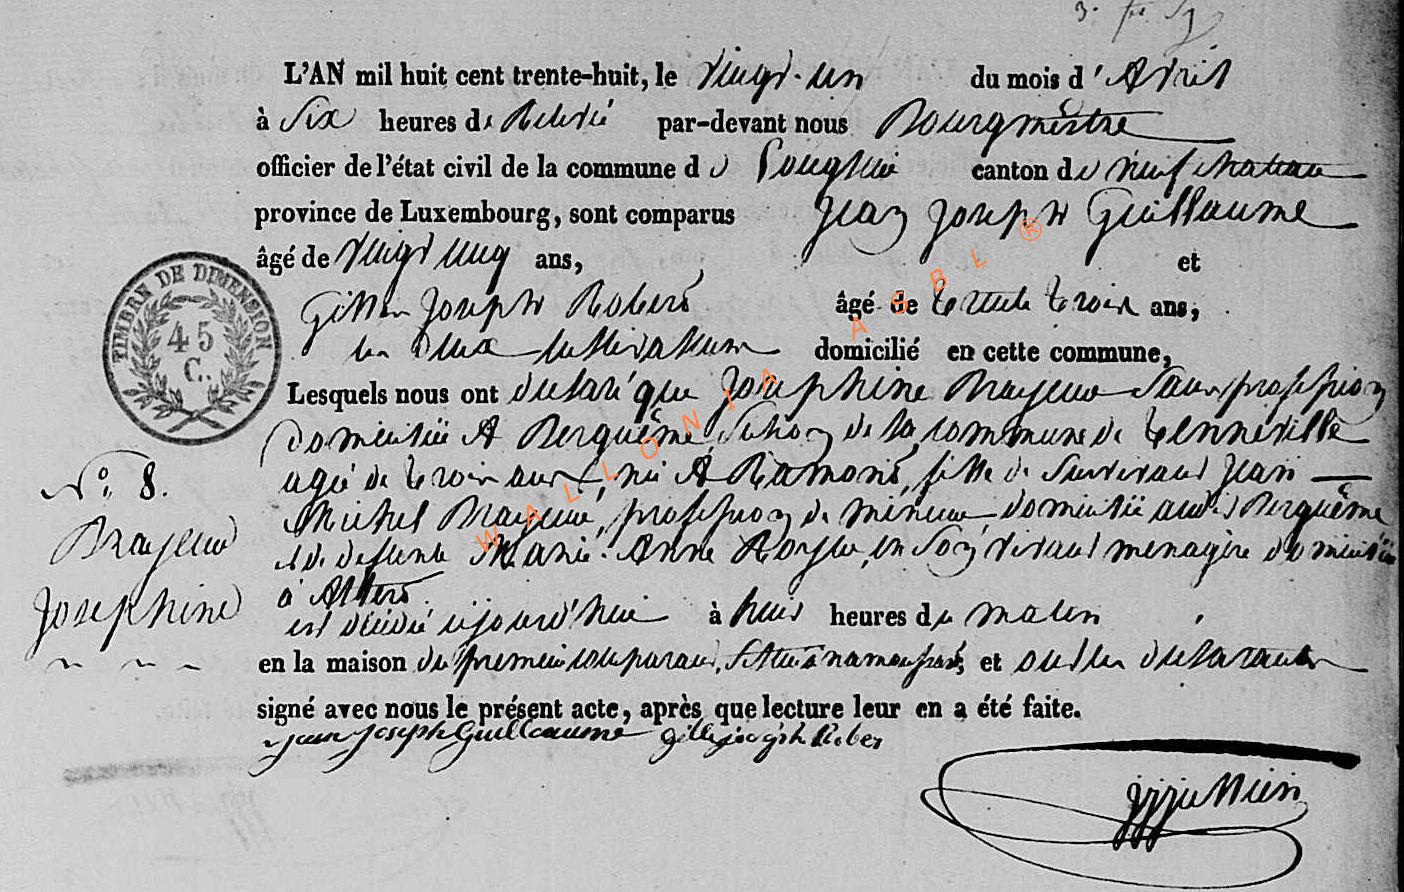 L'AN mil huit cent trente-huit, le vingt-un du mois d'Avril
à Six heures de Relevée par-devant nous Bourgmestre
officier de l'état civil de la commune de Longlier canton de neufchateau
province de Luxembourg, sont comparus Jean Joseph Guillaume
âgé de vingt cinq ans, et
Gilles Joseph Robert âgé de trente trois ans,
les deux cultivateurs domicilié en cette commune,
Lesquels nous ont declaré que Josephine Brayeur Sans profession
domiciliée A Berguême, Section de la commune de Tenneville
agée de trois ans, née A Ramont, fille de Survivant Jean
Michel Brayeur, profession de mineur, domicilié audit Berguême
et de defunte Marie Anne en Son vivant menagère domiciliée
à
est décédé aujourd'hui à huit heures du matin
en la maison du premier comparant, Située à namoussart, et ont les declarants
signé avec nous le présent acte, après que lecture leur en a été faite.
Jean Joseph Guillaume gille joseph Rober
TIMBRE DE DIMENSION
45
C.
N° 8.
Brayeur
Josephine
WALLONIA ASBL ®